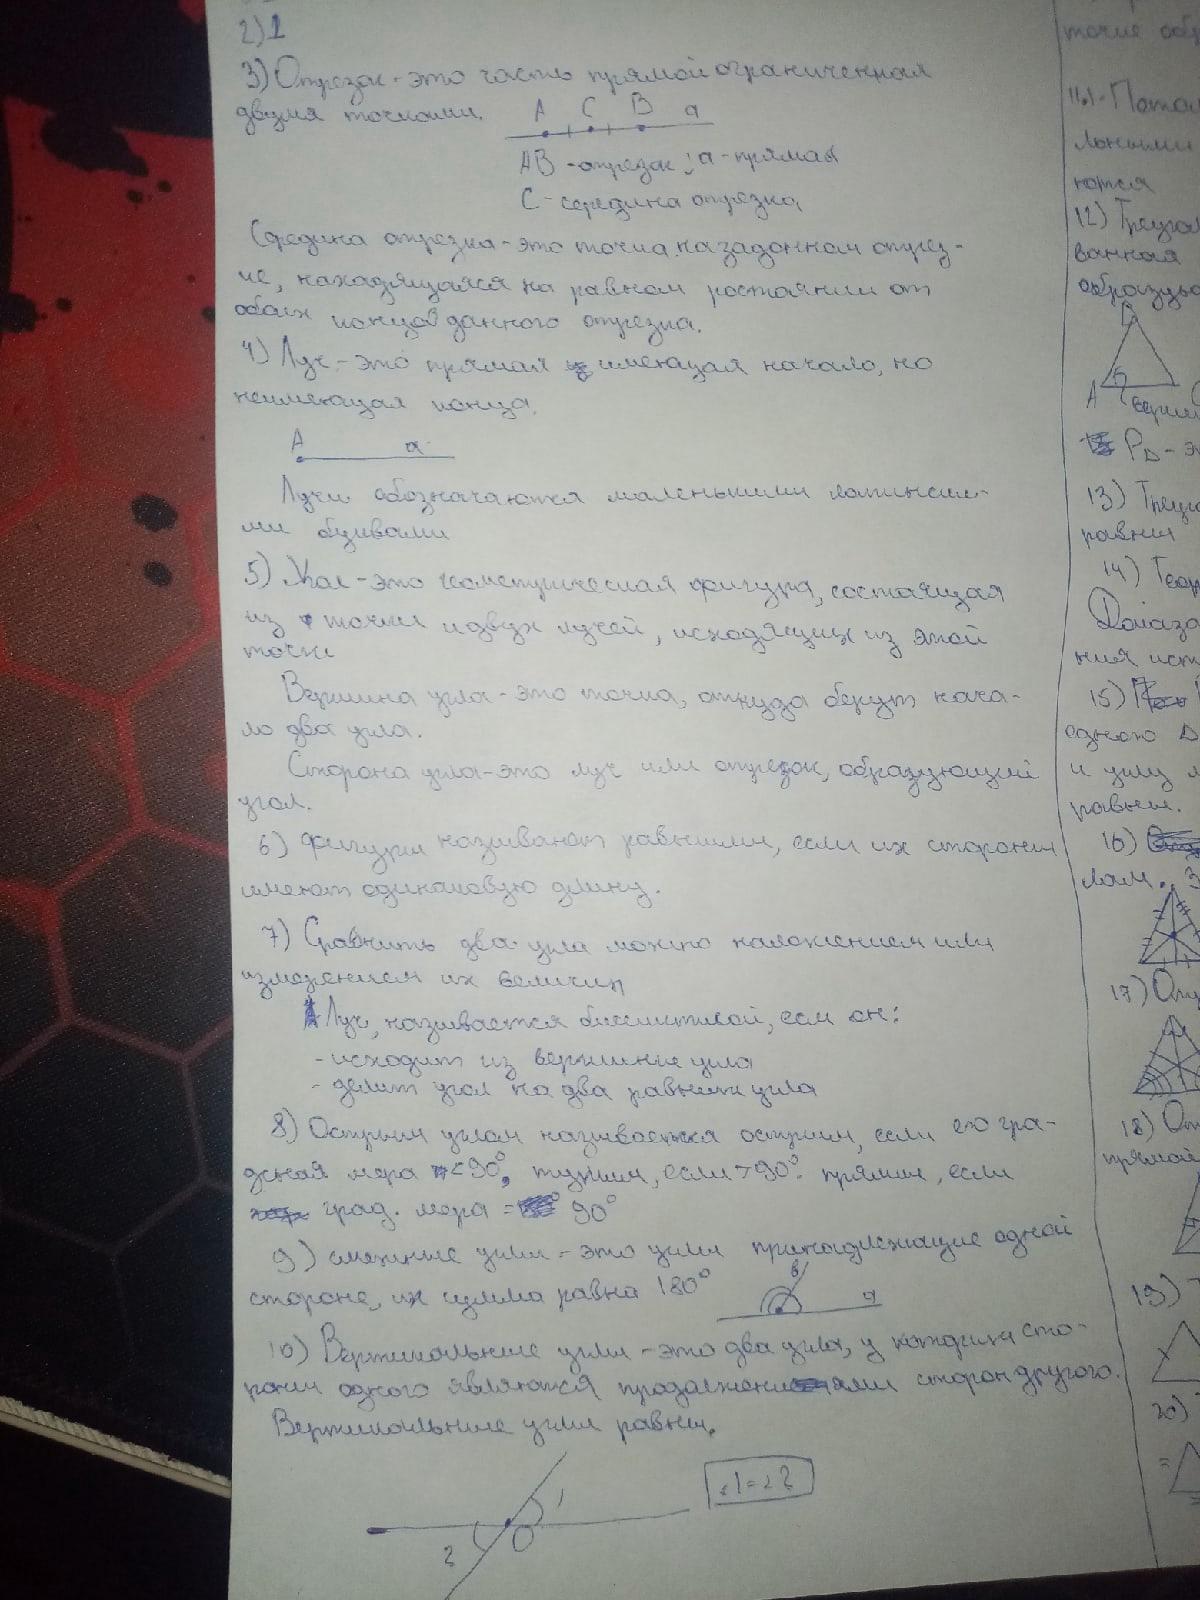 2) 1
3) Отрезок - это часть прямой ограниченная
двумя точками.
A C B a
AB - отрезок; a - прямая
C - середина отрезка
Середина отрезка - это точка на заданном отрез-
ке, находящаяся на равном ростоянии от
обоих концов данного отрезка.
4) Луч - это прямая имеющая начало, но
неимеющая конца.
A a
Лучи обозначаются маленькими латински-
ми буквами
5) Угол - это геометрическая фигура, состоящая
из точки и двух лучей, исходящих из этой
точки
Вершина угла - это точка, откуда берут нача-
ло два угла.
Сторона угла - это луч или отрезок, образующий
угол.
6) Фигуры называют равными, если их стороны
имеют одинаковую длину.
7) Сравнить два угла можно наложением или
измерением их величин
Луч, называется биссектрисой, если он:
- исходит из вершины угла
- делит угол на два равных угла
8) Острым углом называется острым, если его гра-
дусная мера < 90°, тупым, если > 90° прямым, если
град. мера = 90°
9) смежные углы - это углы принадлежащие одной
стороне, их сумма равна 180°
a
10) Вертикальные углы - это два угла, у которых сто-
роны одного являются продолжениями сторон другого.
Вертикальные углы равны.
∠1=∠2
1
2 O
точие
11.
льными
ются
12) Треуго
ванная
образую
B
A
P∆ - э
13) Треуго
равны
14) Теор
Доказа
ния ист
15)
одного ∆
и углу
равны.
16)
лам.
17)
18)
прямой
19)
20)